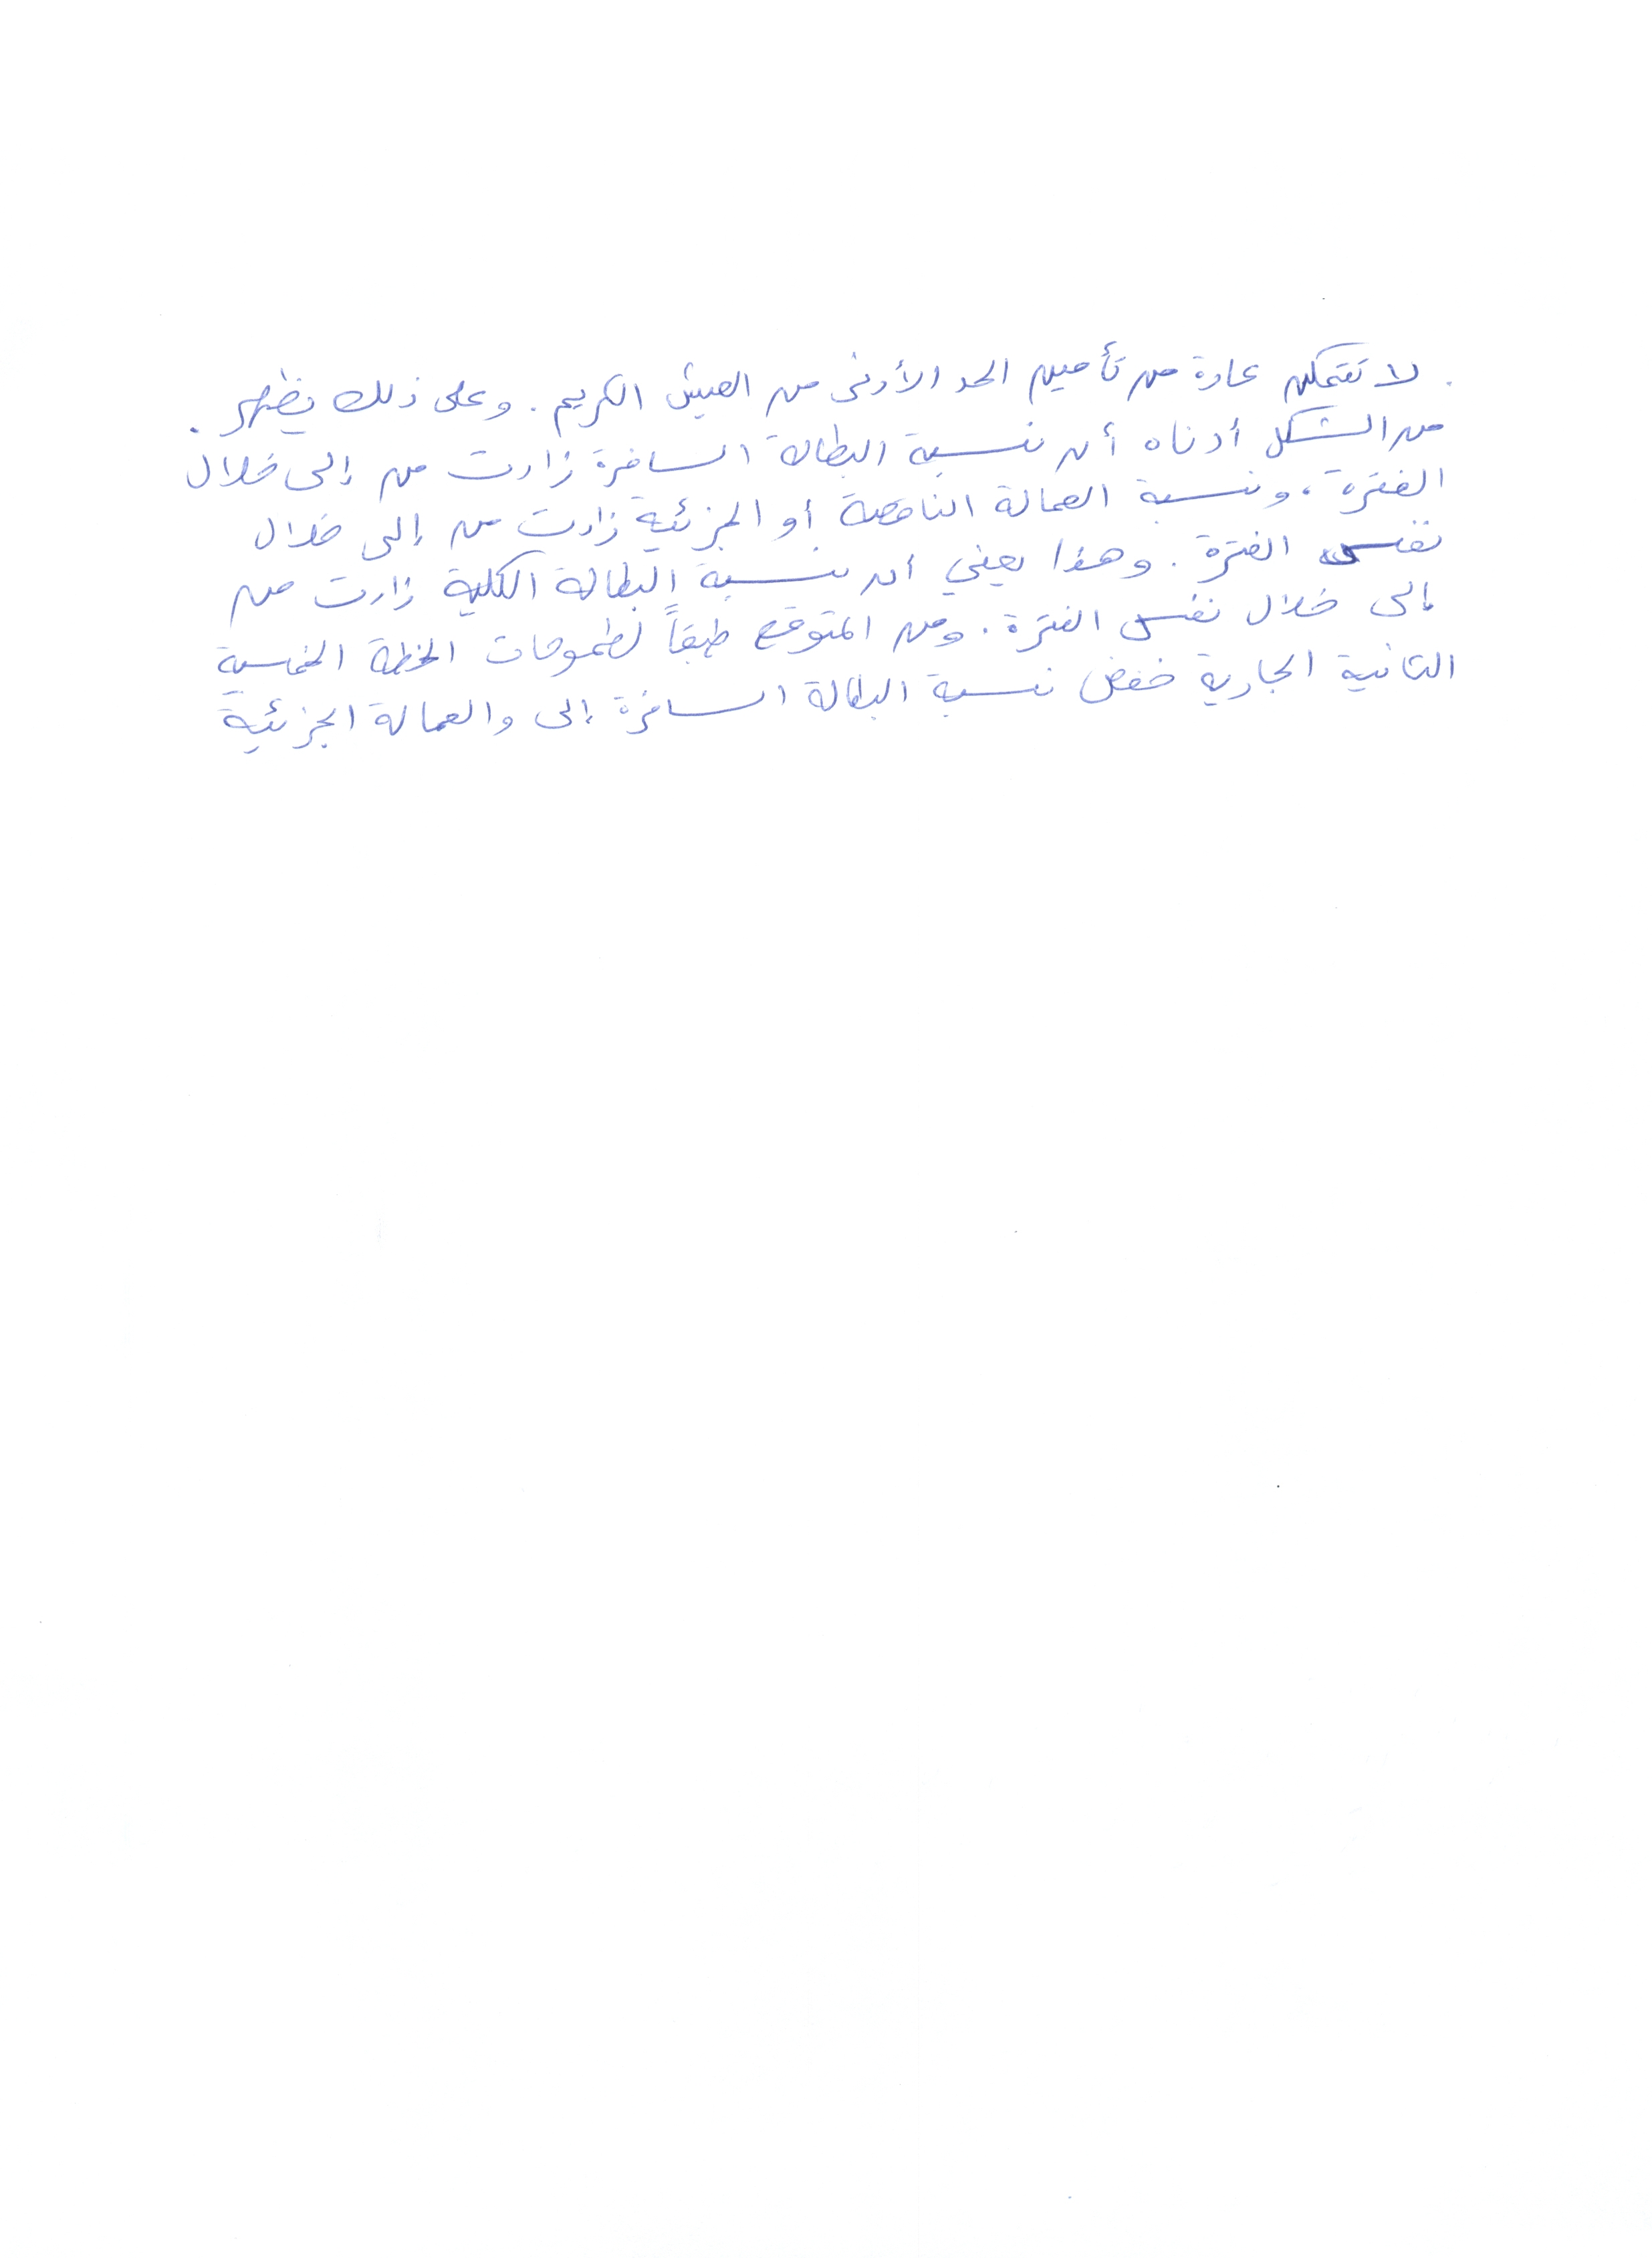 . لا تتمكن عادة من تأمين الحد الأدنى من العيش الكريم. وعلى ذلك يظهر .
من الشكل أدناه أن نسبة البطالة السافرة زادت من إلى خلال
الفترة، ونسبة العمالة الناقصة أو الجزئية زادت من إلى خلال
نفس الفترة. وهذا يعني أن نسبة البطالة الكلية زادت من
إلى خلال نفس الفترة. ومن المتوقع طبقاً لطموحات الخطة الخمسية
الثانية الجارية خفض نسبة البطالة السافرة إلى والعمالة الجزئية